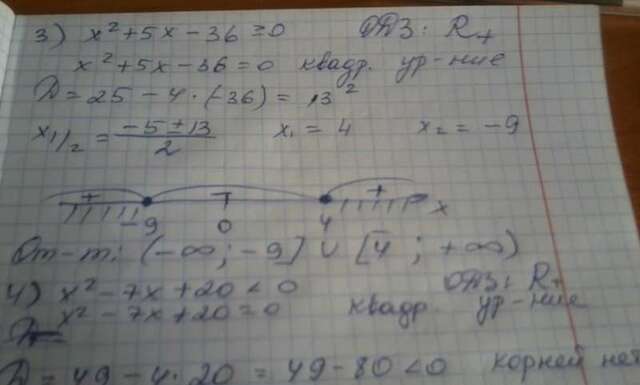 3) x² + 5x - 36 ≥ 0 ОДЗ: R₊
x² + 5x - 36 = 0 квадр. ур-ние
D = 25 - 4 · (-36) = 13²
x₁/₂ = (-5 ± 13)/2 x₁ = 4 x₂ = -9
+ - +
-9 0 4 x
От-т: (-∞; -9] ∪ [4; +∞)
4) x² - 7x + 20 < 0 ОДЗ: R₊
x² - 7x + 20 = 0 квадр. ур-ние
D = 49 - 4 · 20 = 49 - 80 < 0 корней нет